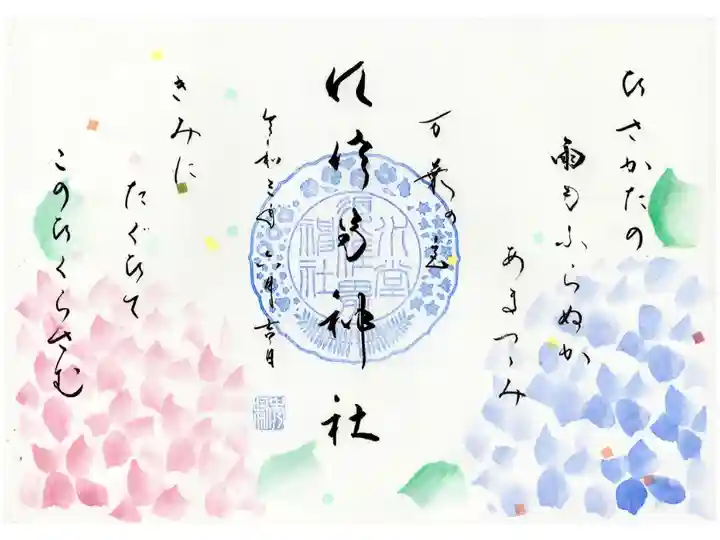 ひさかたの
雨もふらぬか
あまつつみ
万葉の
神社
令和三年六月吉日
きみに
たぐひて
このひくらさむ